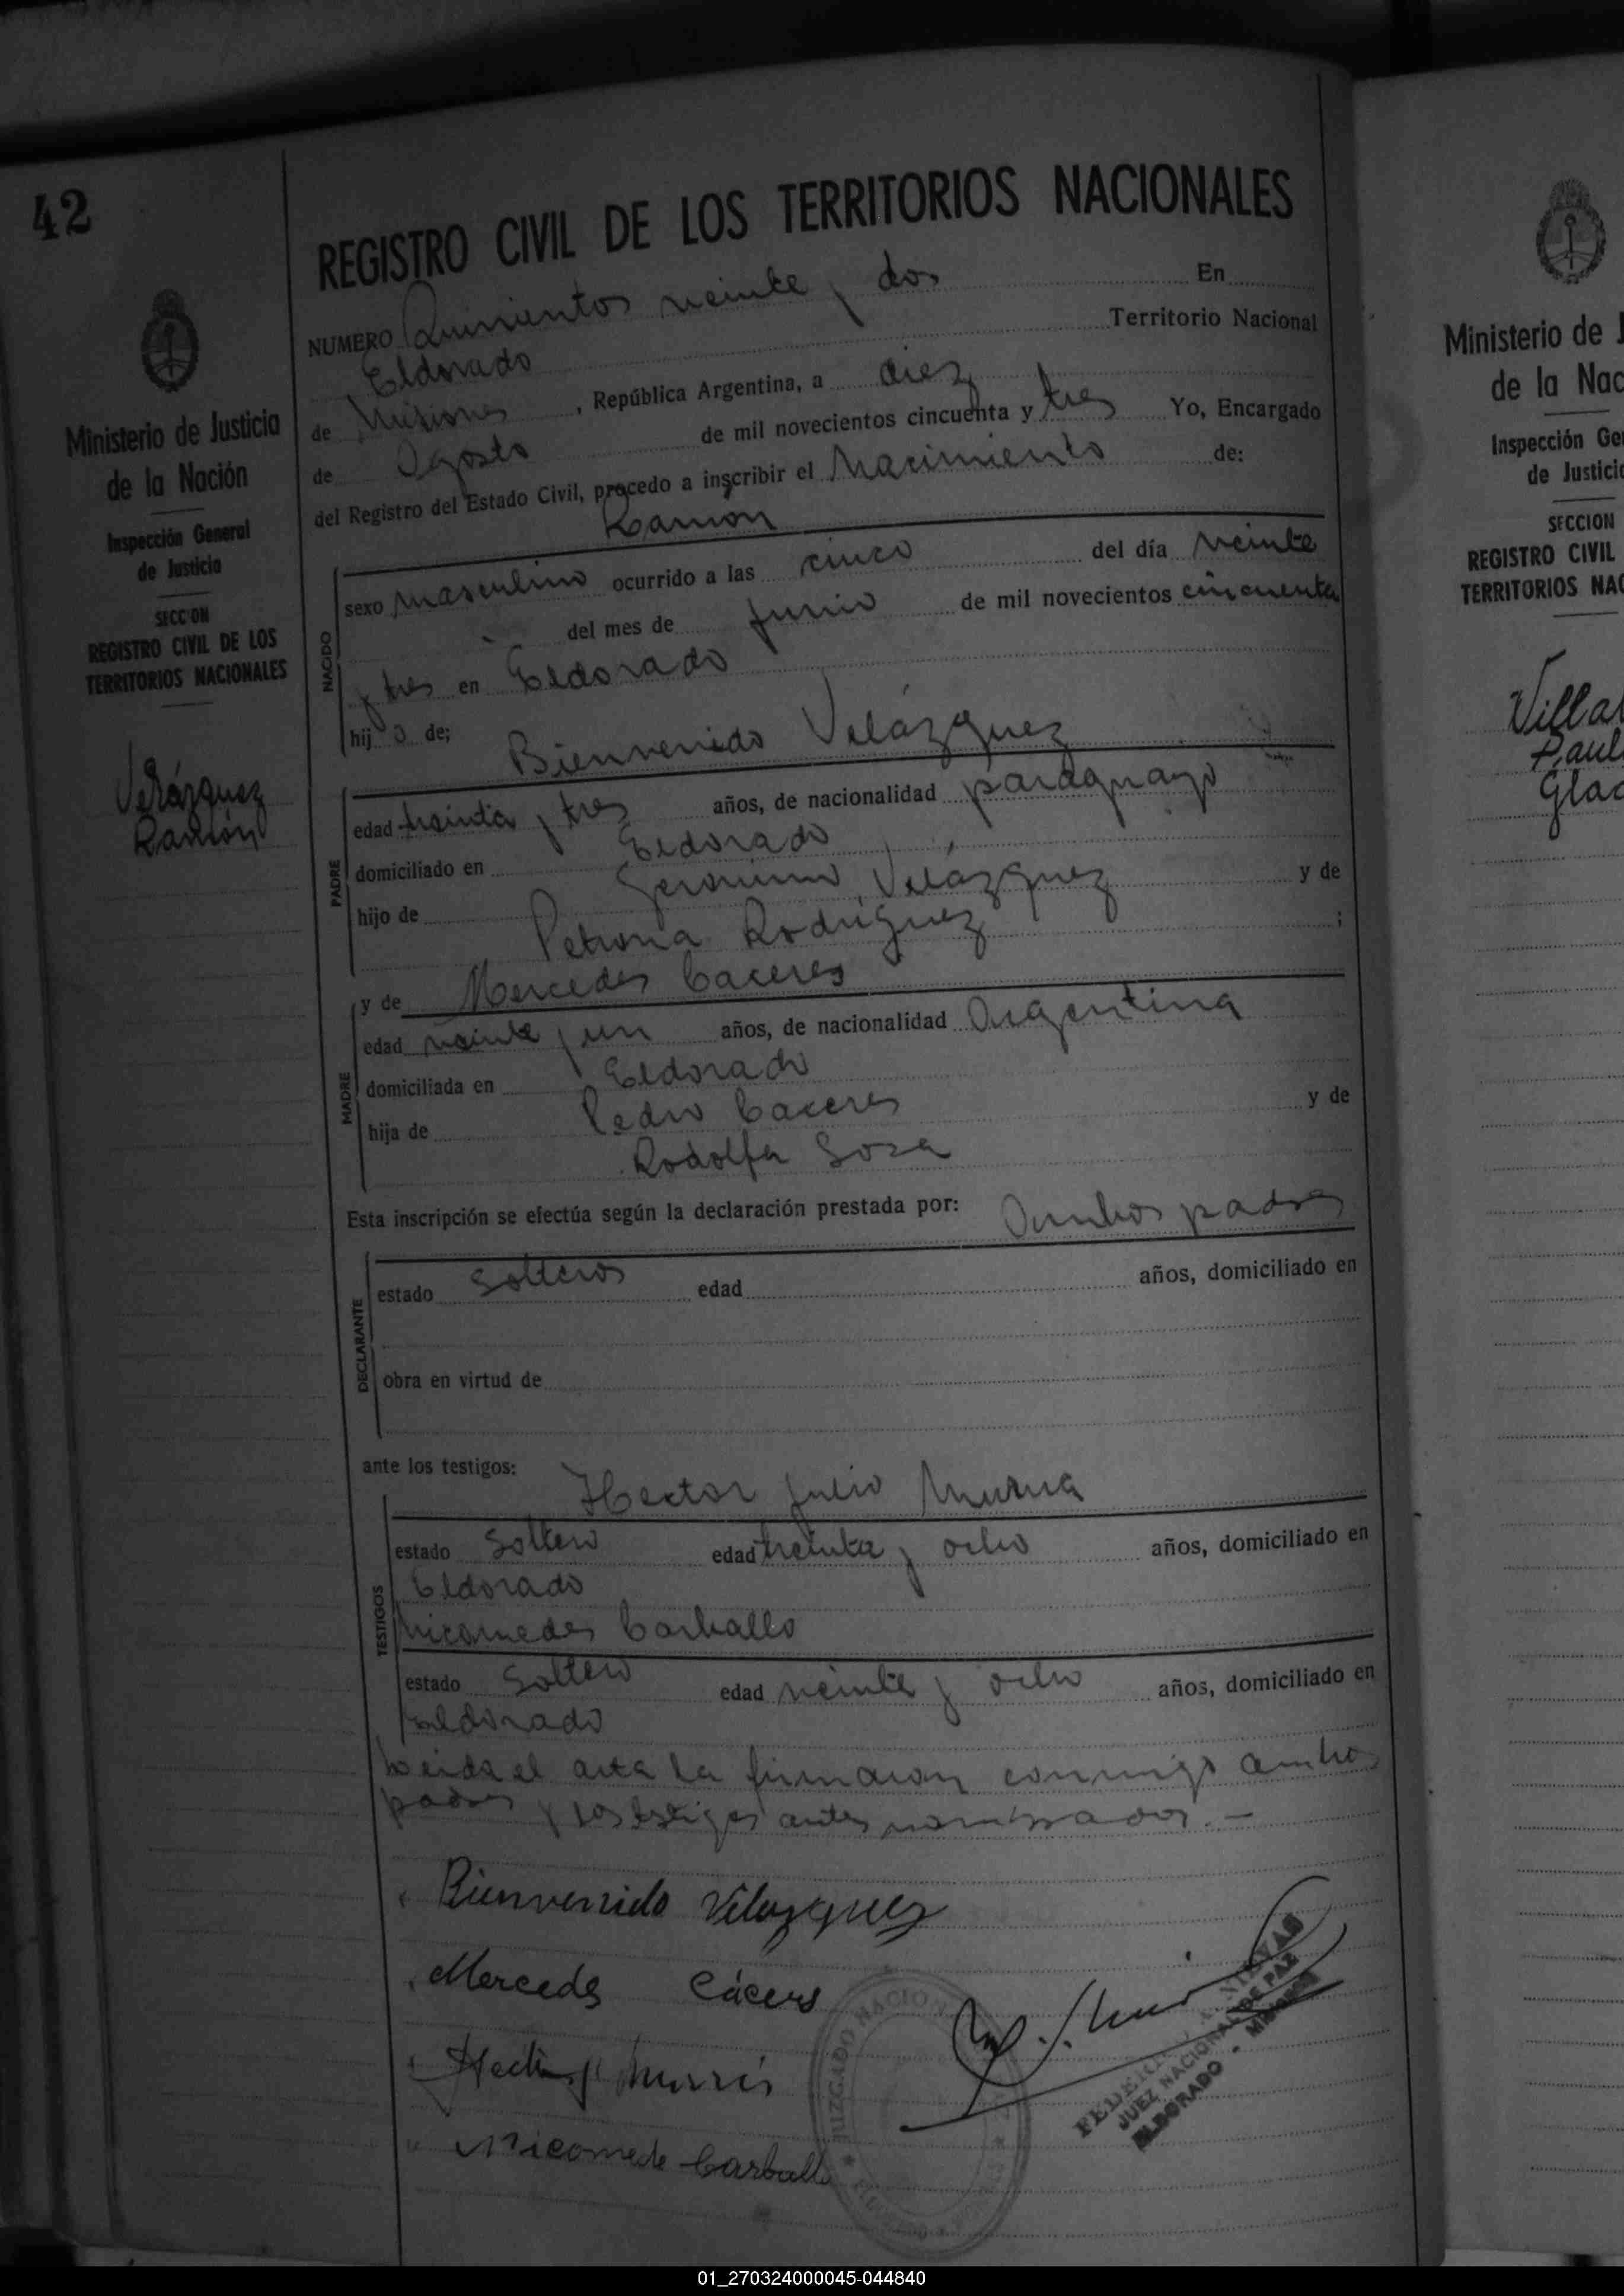 42
Ministerio de Justicia
de la Nación
Inspección General
de Justicia
SECCION
REGISTRO CIVIL DE LOS
TERRITORIOS NACIONALES
Velázquez
Ramón
REGISTRO CIVIL DE LOS TERRITORIOS NACIONALES
NUMERO Quinientos veinte y dos En
Eldorado Territorio Nacional
de Misiones, República Argentina, a diez
de Agosto de mil novecientos cincuenta y tres Yo, Encargado
del Registro del Estado Civil, procedo a inscribir el Nacimiento de:
Ramón
NACIDO
sexo masculino ocurrido a las cinco del día veinte
del mes de Junio de mil novecientos cincuenta
y tres en Eldorado
hijo de; Bienvenido Velázquez
PADRE
edad treinta y tres años, de nacionalidad paraguayo
domiciliado en Eldorado
hijo de Geronimo Velázquez y de
Petrona Rodríguez ;
y de Mercedes Caceres
MADRE
edad veinte y un años, de nacionalidad Argentina
domiciliada en Eldorado
hija de Pedro Caceres y de
Rodolfa Sosa
Esta inscripción se efectúa según la declaración prestada por: Ambos padres
DECLARANTE
estado Solteros edad años, domiciliado en
obra en virtud de
ante los testigos: Hector Julio
TESTIGOS
estado Soltero edad treinta y ocho años, domiciliado en
Eldorado
Nicomedes Carballo
estado Soltero edad veinte y ocho años, domiciliado en
Eldorado
Leida el acta la firmaron conmigo ambos
padres y los testigos antes nombrados.-
Bienvenido Velazquez
Mercedes Cáceres
Nicomede Carballo
JUZGADO NACIONAL
JUEZ NACIONAL DE PAZ
ELDORADO - MISIONES
Ministerio de J
de la Nac
Inspección Ge
de Justici
SECCION
REGISTRO CIVIL
TERRITORIOS NAC
Villa
Paul
Glad
01_270324000045-044840